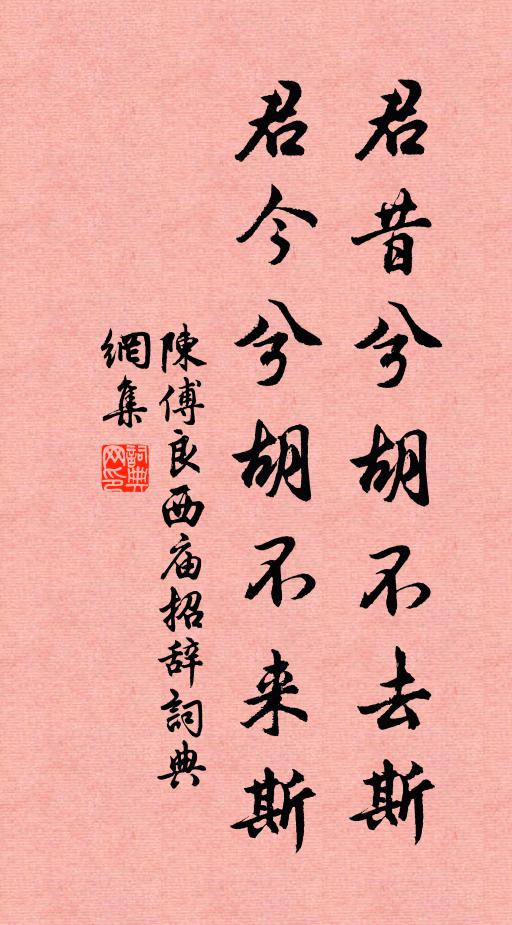 君昔兮胡不去斯
君今兮胡不来斯
陳傅良西庙招辞詞典
網集
詞典
网印